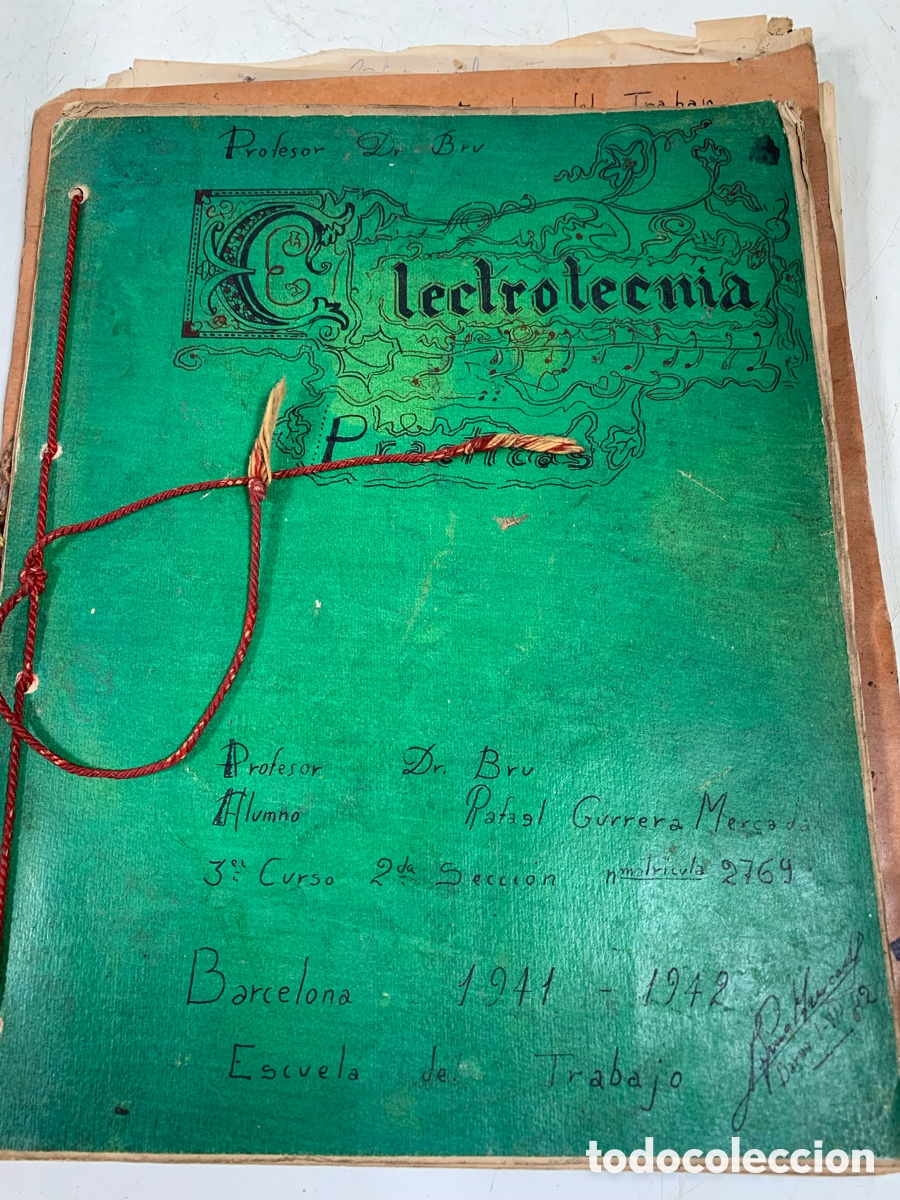 del Trabajo
Profesor Dr. Bru
Electrotecnia
Practicas
Profesor Dr. Bru
Alumno Rafael Gurrera Mercadal
3er. Curso 2da Sección nmatricula 2769
Barcelona 1941 - 1942
Escuela del Trabajo
todocoleccion